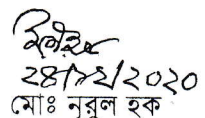 ২৪/১২/২০২০
মোঃ নূরুল হক